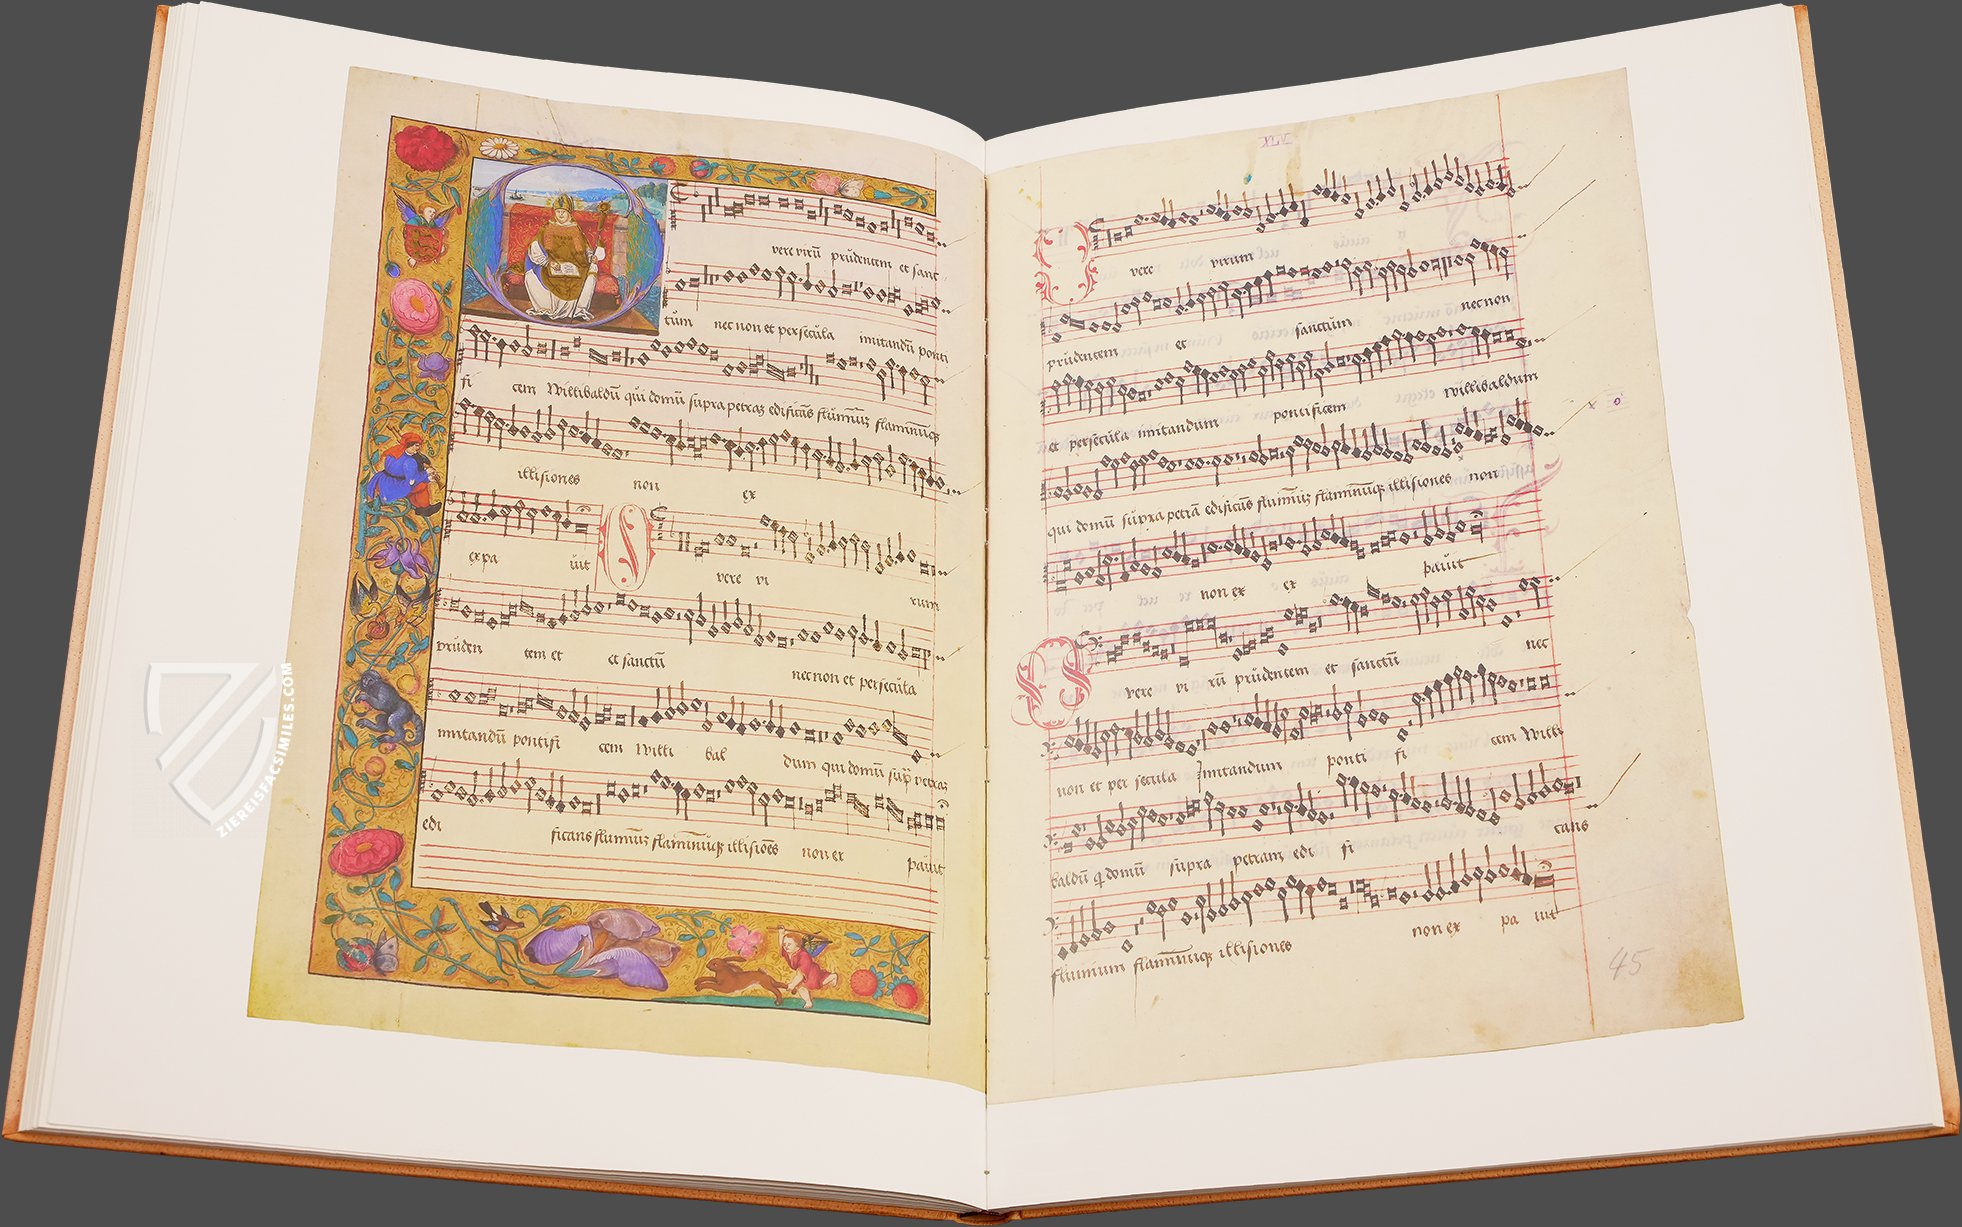 vere virū prudentem et sanc
tum nec non et persecula imitandū ponti
fi cem Willibaldū qui domū supra petraꝫ edificās flumīnīꝫ flamīnūqꝫ
illisiones non ex
expa uit
O vere vi rum
pruden tem et et sanctū nec non et persecula
imitandū pontifi cem Willi bal dum qui domū sup̄ petraꝫ
edi ficans flumīnīꝫ flamīnūqꝫ illisiōes non ex pauit
vere virum
prudentem et sanctum nec non
et persecula imitandum pontificem Willibaldum
qui domū supra petrā edificās flumīnīꝫ flamīnūqꝫ illisiones non
non ex ex pauit
O vere vi rū prudentem et sanctū nec
non et per secula Imitandum ponti fi cem Willi
baldū q̄ domū supra petram edi fi cans
fluminum flamīnūqꝫ illisiones non ex pa uit
45
ZIEREISFACSIMILES.COM